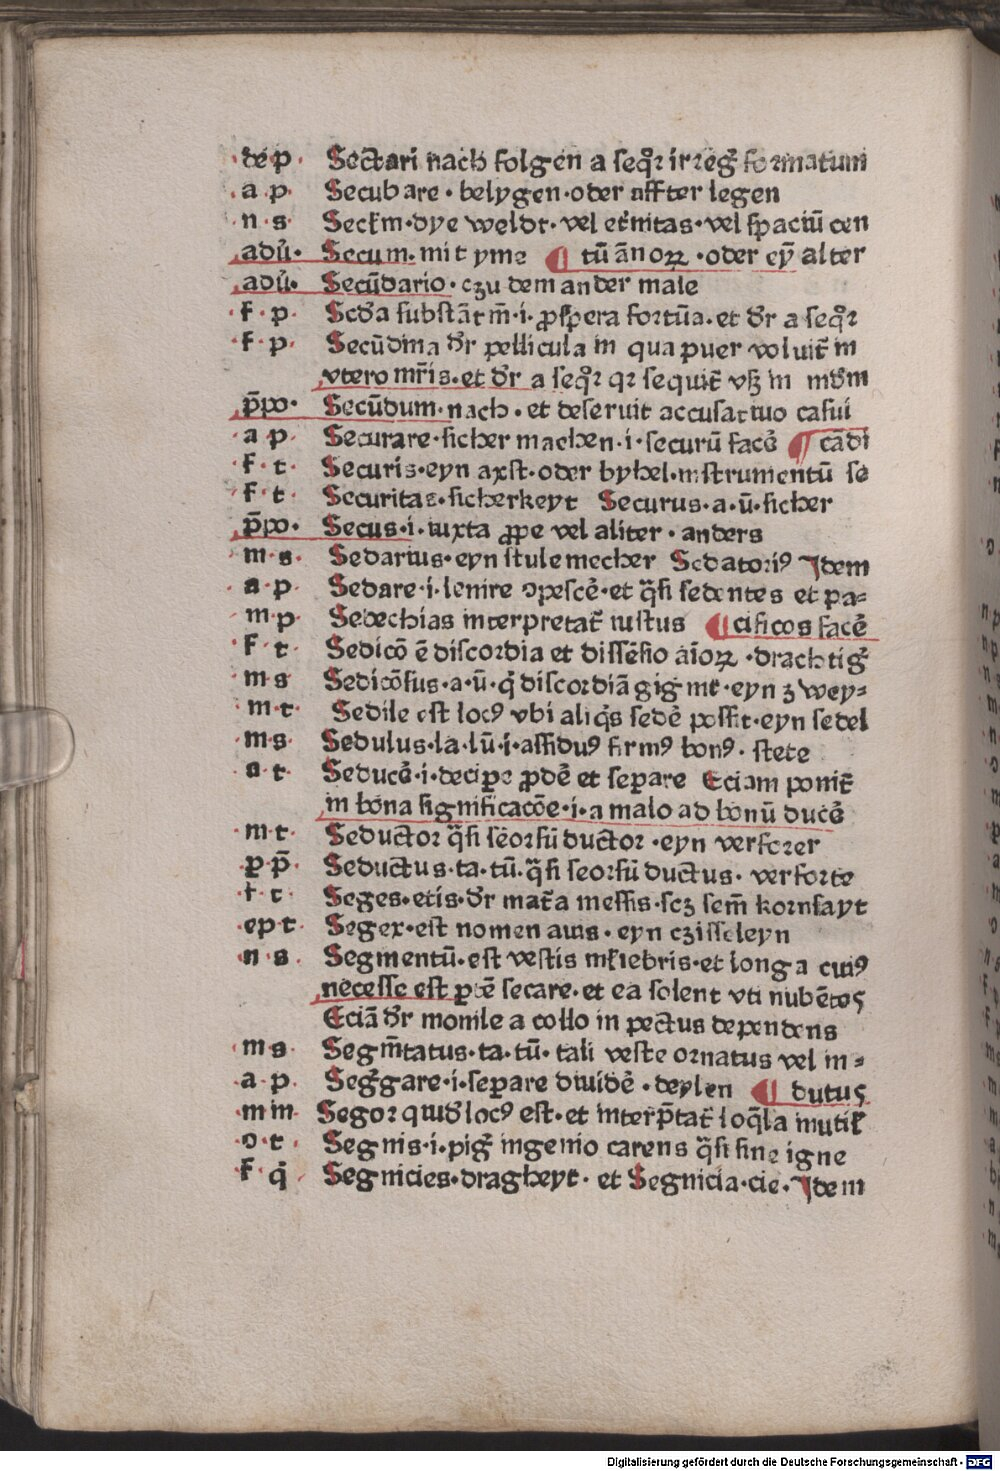 ·de·p· Sectari nach folgen a seqr̄ irreḡ formatum
·a·p· Secubare· belygen·oder affter legen
·n·s· Seclm̄·dye weldt·vel et̄nitas·vel spaciū cen
aduͥ· Secum·mit yme ¶ tū ān oꝝ·oder eȳ alter
aduͥ· Secūdario·czu dem ander male
·f·p· Scd̄a substāt m̄·i·ꝓspera fortūa·et dr̄ a seqr̄
·f·p· Secūdina dr̄ pellicula in qua puer voluit̄ in
vtero mr̄is·et dr̄ a seqr̄ qꝛ sequit̄ vsꝫ in mūdm
p̄po· Secūdum·nach·et deseruit accusatiuo casui
·a·p· Securare·sicher machen·i·securū facē ¶ cādi
·f·t· Securis·eyn axst·oder byhel·instrumentū se
·f·t· Securitas·sicherkeyt Securus·a·ū·sicher
p̄po· Secus·i·iuxta ꝓpe vel aliter·anders
m·s· Sedarius·eyn stule mecher Sedatoriꝰ Jdem
·a·p· Sedare·i·lenire ꝯpescē·et q̄si sedentes et pa-
m·p· Sedechias interpretat̄ iustus ¶ cificos facē
·f·t· Sedicō ē discordia et dissēsio aīoꝝ·drachtiḡ
·m·s Sedicōsus·a·ū·q̇ discordiā gignit·eyn zwey-
·m·t· Sedile est locꝰ vbi aliq̇s sedē possit·eyn sedel
·m·s· Sedulus·la·lū·i·assiduꝰ firmꝰ bonꝰ·stete
·a·t· Seducē·i·decipe ꝓdē et seꝑare Eciam ponit̄
in bona significacōe·i·a malo ad bonū ducē
·m·t· Seductor q̄si seorsū ductor·eyn verforer
·ꝑ·p̄· Seductus·ta·tū·q̄si seorsū ductus·verforte
·f·t· Seges·etis·dr̄ mat̄a messis·scꝫ sem̄ kornsayt
·epi·t· Segex·est nomen auis·eyn cziseleyn
·n·s· Segmentū·est vestis ml̄iebris·et longa cuiꝰ
necesse est ꝑtē secare·et ea solent vti nubētes
Eciā dr̄ monile a collo in pectus dependens
·m·s· Segm̄tatus·ta·tū·tali veste ornatus vel in-
·a·p· Segḡare·i·seꝑare diuidē·deylen ¶ dutus
·m·m· Segor quid̄ locꝰ est·et interp̄tat̄ loq̄la inutil̄
·o·t· Segnis·i·piḡ ingenio carens q̄si sine igne
·f·q̇· Segnicies·dragheyt·et Segnicia·cie·Jdem
Digitalisierung gefördert durch die Deutsche Forschungsgemeinschaft - DFG